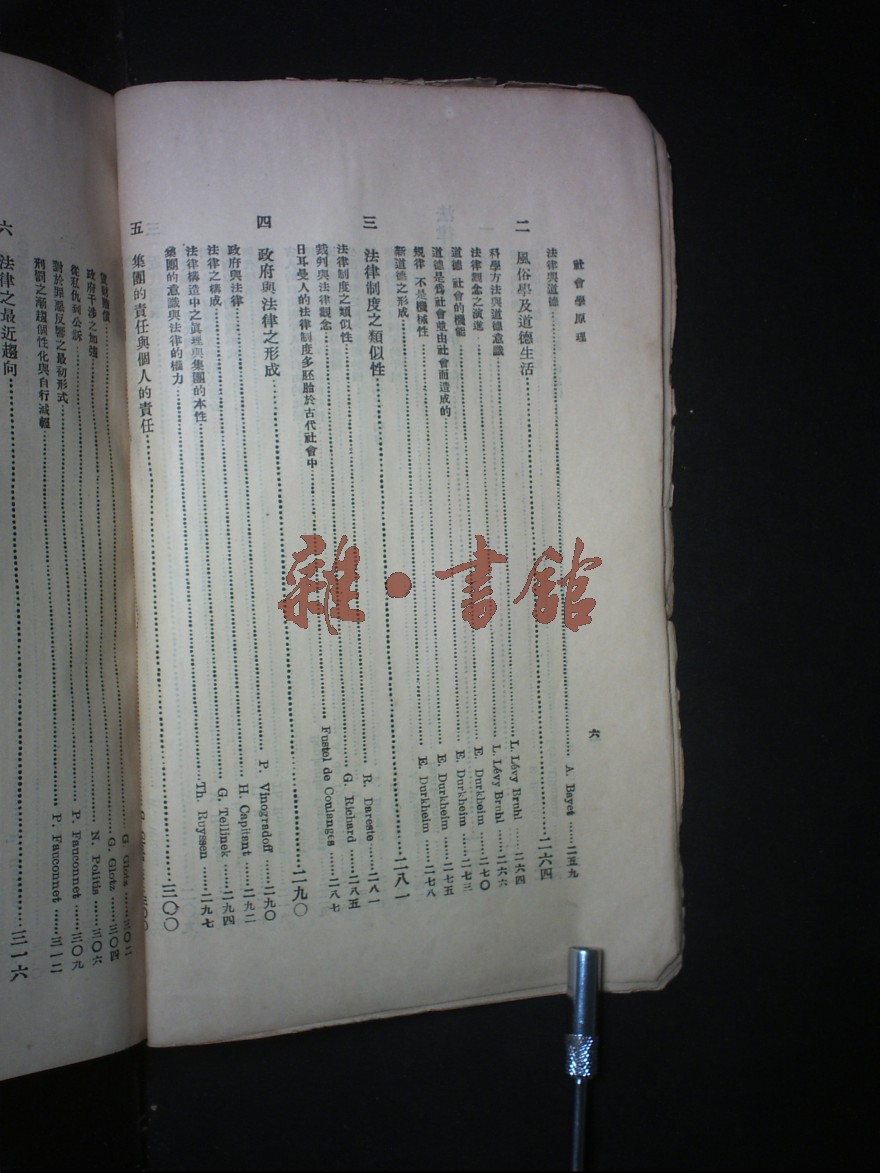 社會學原理 六
法律與道德……A. Bayet……二五九
二 風俗學及道德生活……二六四
科學方法與道德意識……L. Lévy Bruhl……二六四
法律觀念之演進……L. Lévy Bruhl……二六六
道德 社會的機能……E. Durkheim……二七〇
道德是為社會並由社會而造成的……E. Durkheim……二七三
規律 不是機械性……E. Durkheim……二七五
新道德之形成……E. Durkheim……二七八
三 法律制度之類似性……二八一
法律制度之類似性……R. Dareste……二八一
裁判與法律觀念……G. Richard……二八五
日耳曼人的法律制度多胚胎於古代社會中……Fustel de Coulanges……二八七
四 政府與法律之形成……二九〇
政府與法律……P. Vinogradoff……二九〇
法律之構成……H. Capitant……二九二
法律構造中之眞理與集團的本性……G. Tellinek……二九四
集團的意識與法律的權力……Th. Ruyssen……二九七
五 集團的責任與個人的責任……三〇〇
賠償……G. Glotz……三〇二
政府干涉之加強……G. Glotz……三〇四
從私仇到公訴……N. Politis……三〇六
對於罪惡反響之最初形式……P. Fauconnet……三〇九
刑罰之漸趨個性化與自行減輕……P. Fauconnet……三一二
六 法律之最近趨向……三一六
雜·書館